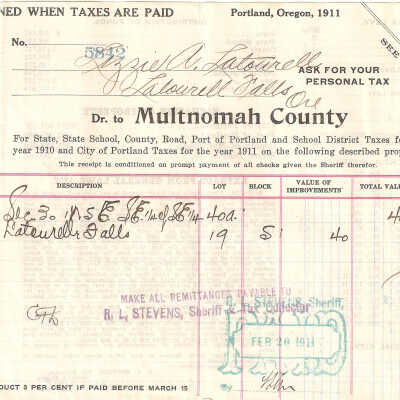 NED WHEN TAXES ARE PAID Portland, Oregon, 1911
No. 5842
SEE
Lizzie A. Latourell
Latourell Falls
Ore
ASK FOR YOUR
PERSONAL TAX
Dr. to Multnomah County
For State, State School, County, Road, Port of Portland and School District Taxes fo
year 1910 and City of Portland Taxes for the year 1911 on the following described prop
This receipt is conditioned on prompt payment of all checks given the Sheriff therefor.
DESCRIPTION LOT BLOCK VALUE OF IMPROVEMENTS TOTAL VALU
Sec 30 SE 1/4 of SE 1/4 40a. 4
Latourelle Falls 19 5 40
MAKE ALL REMITTANCES PAYABLE TO
R. L. STEVENS, Sheriff & Tax Collector
STEVENS, Sheriff,
FEB 20 1911
DUCT 3 PER CENT IF PAID BEFORE MARCH 15